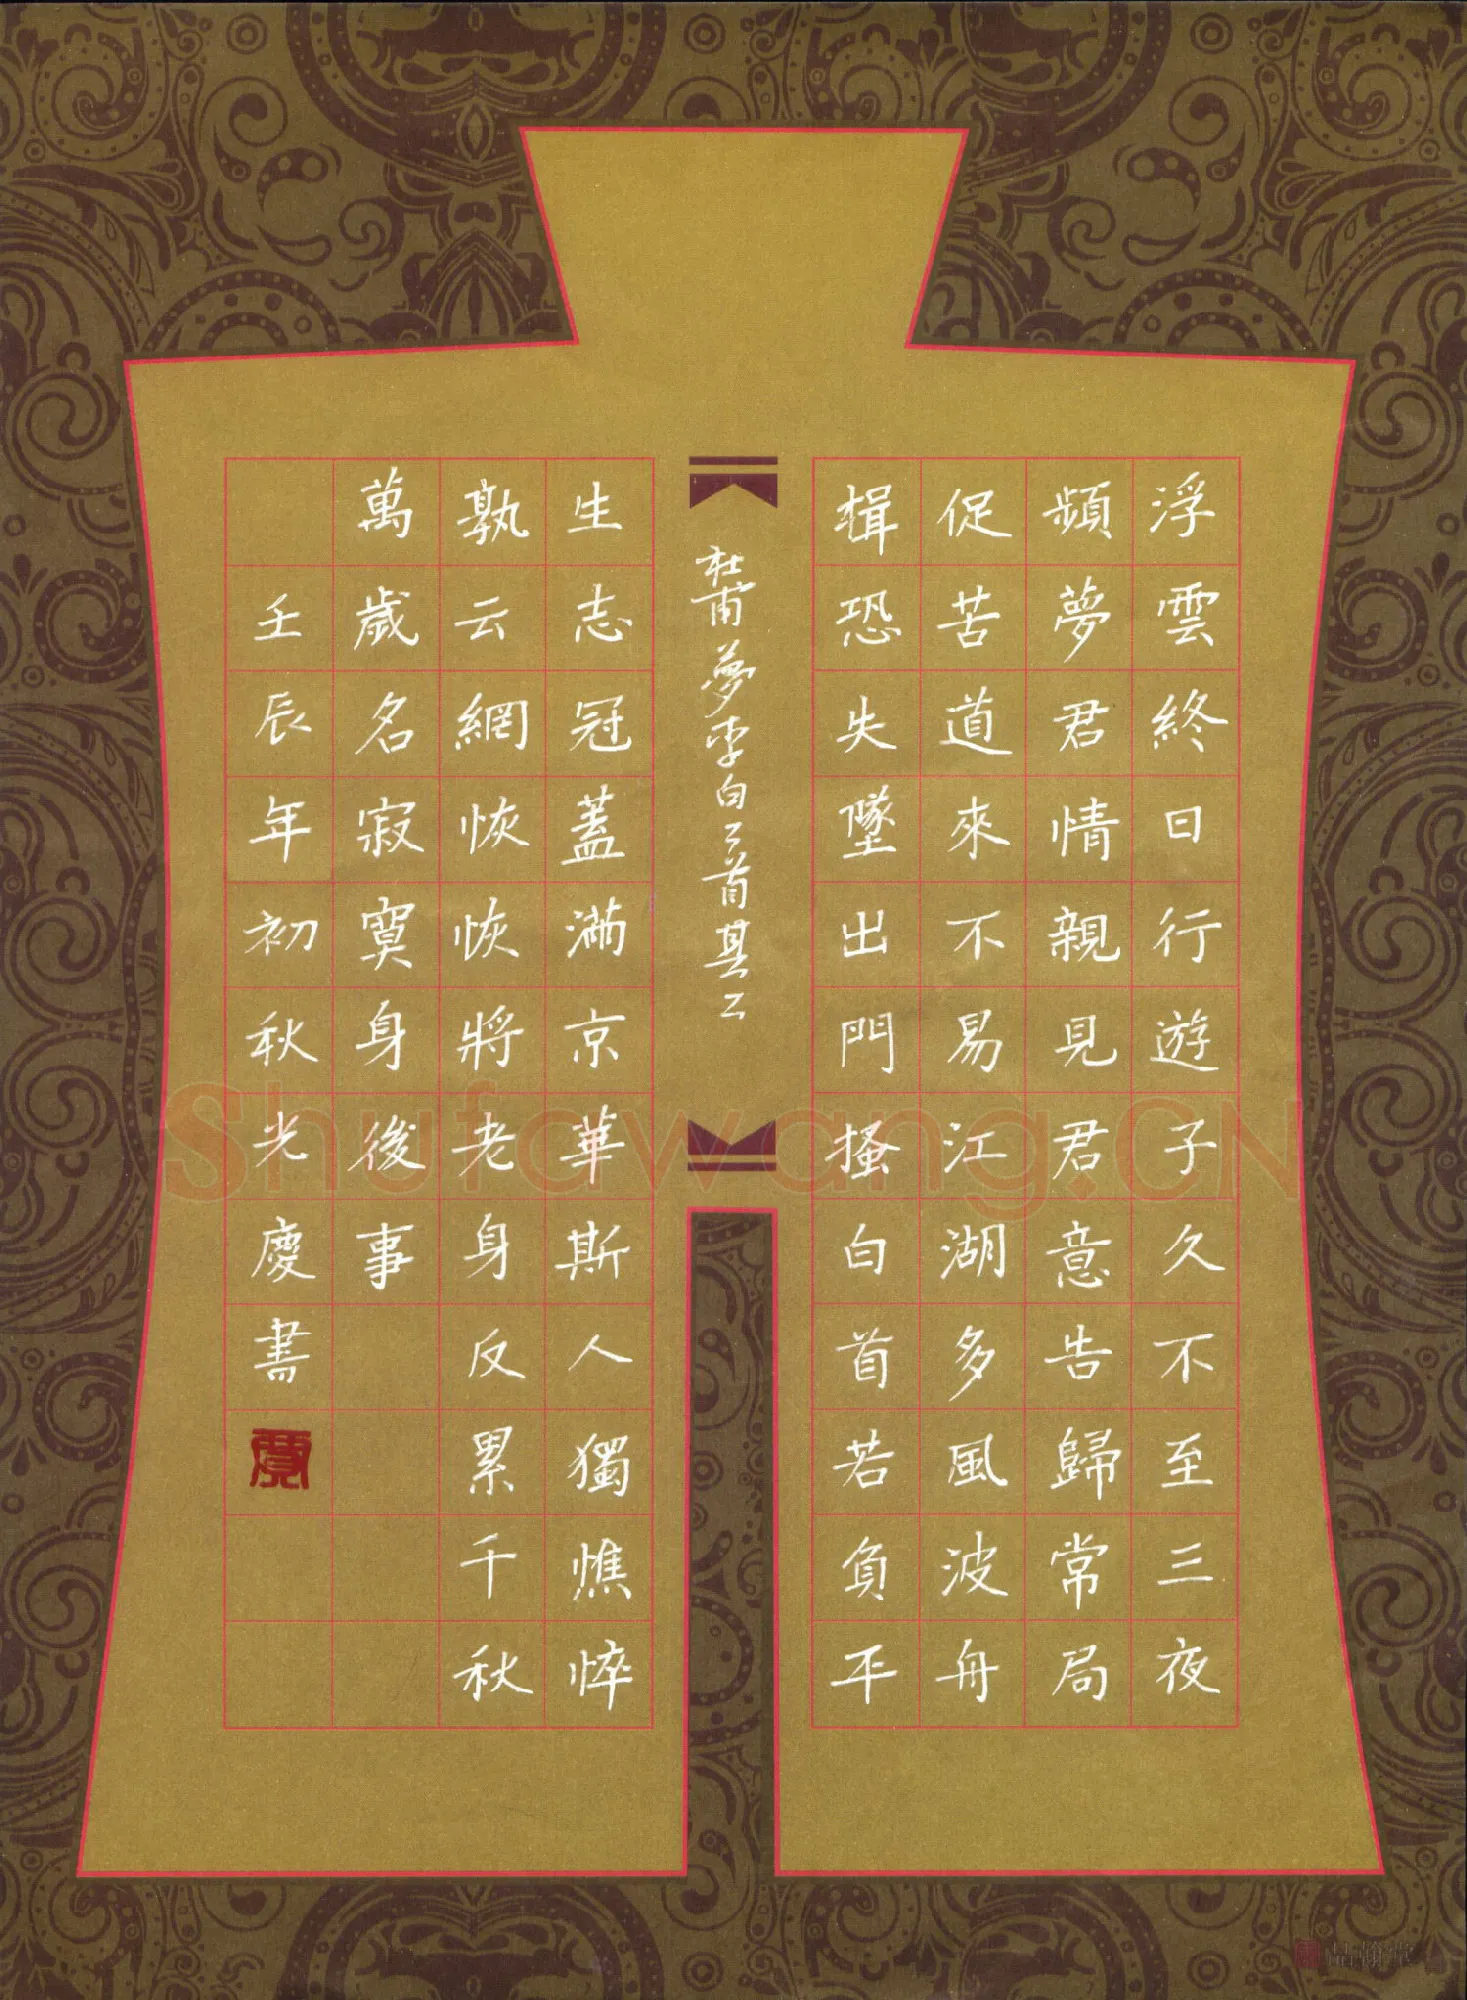 浮雲終日行遊子久不至三夜
頻夢君情親見君意告歸常局
促苦道來不易江湖多風波舟
楫恐失墜出門搔白首若負平
杜甫夢李白二首其二
生志冠蓋滿京華斯人獨憔悴
孰云網恢恢將老身反累千秋
萬歲名寂寞身後事
壬辰年初秋光慶書
Shufawang.CN